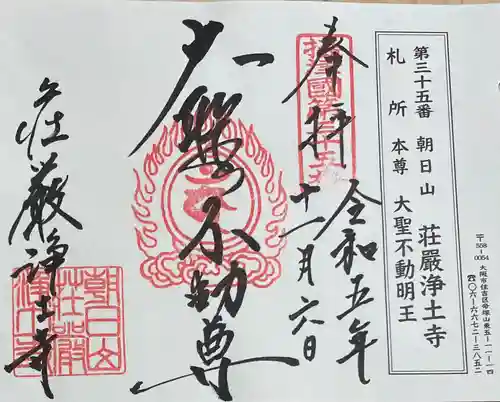 第三十五番 朝日山 荘嚴浄土寺
札所 本尊 大聖不動明王
〒558-0054 大阪市住吉区帝塚山東五-一一-一四
☎〇六-六六七二-三八五二
奉拝
令和五年
十一月六日
大聖不動尊
荘嚴浄土寺
摂津國第三十五
朝日山
荘嚴
浄土寺